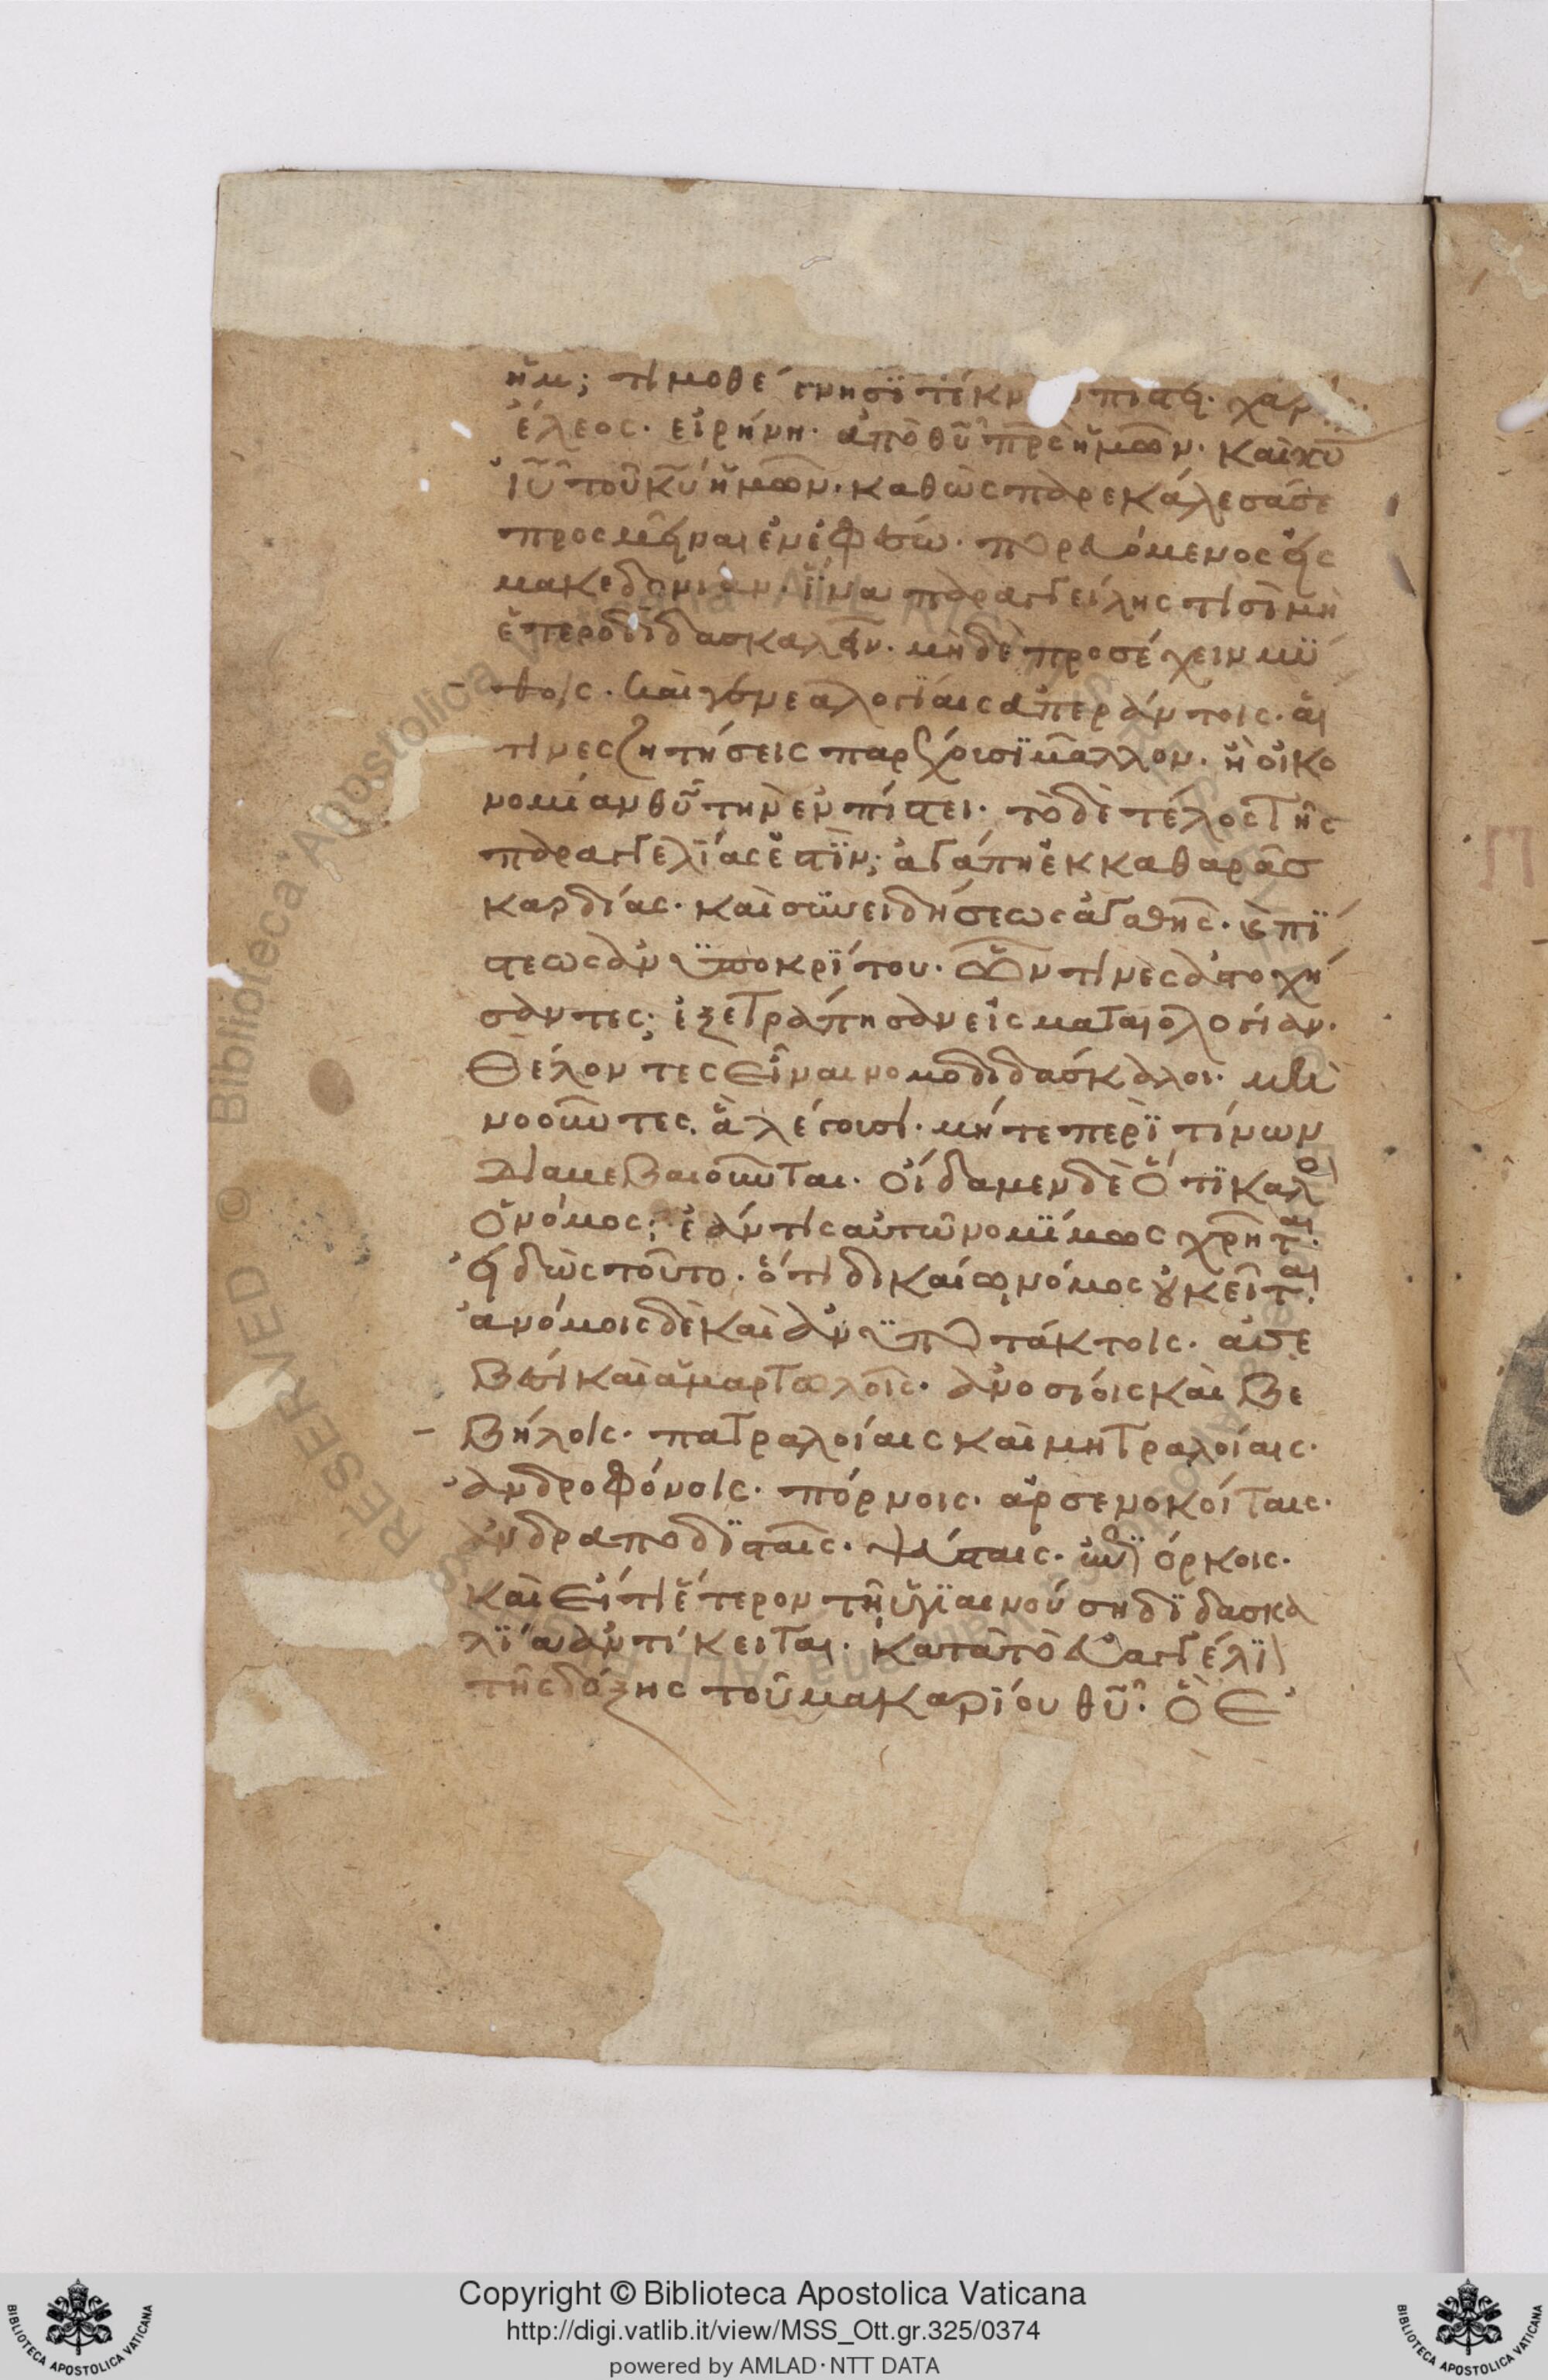 ἡμ; τιμοθέ γνησϊ τέκν πίστει. χαρ
ἔλεος. εἰρήνη. ἀπὸ θῦ πρς ἡμῶν. καὶ χυ
ἰῦ τοῦ κῦ ἡμῶν. καθὼς παρεκάλεσά σε
προσμεῖναι ἐν ἐφέσω. πορευόμενος εἰς
μακεδονιαν. ἵνα παραγγείλης τισὶ μὴ
ἑτεροδιδασκαλεῖν. μηδὲ προσέχειν μϋ
θοις. καὶ γενεαλογίαις ἀπεράντοις. αἵ
τινες ζητήσεις παρέχουσϊ μᾶλλον. ἢ οἰκο
νομίαν θῦ τὴν ἐν πίστει. τὸ δὲ τέλος τῆς
παραγγελίας ἐστϊν; ἀγάπη ἐκ καθαρᾶσ
καρδίας. καὶ συνειδήσεως ἀγαθῆς. καὶ πϊ
στεως ἀνϋποκρϊτου. ὧν τινὲς ἀστοχή
σαντες; ἐξετράπησαν εἰς ματαιολογίαν.
θέλοντες εἶναι νομοδιδασκαλοι. μὴ
νοοῦντες. ἃ λέγουσι. μήτε περϊ τίνων
διαμεβαιοῦνται. οἴδαμεν δὲ ὅτϊ καλὸ
ὁ νόμος; ἐάν τις αὐτῶ νομϊμως χρῆται.
εἰδὼς τοῦτο. ὅτι δικαίῳ νόμος οὐ κεῖται.
ἀνόμοις δὲ καὶ ἀνϋποτάκτοις. ἀσε
βέσι καὶ ἁμαρτωλοῖς. ἀνοσίοις καὶ βε
βήλοις. πατραλοίαις καὶ μητραλοίαις.
ἀνδροφόνοις. πόρνοις. ἀρσενοκοίταις.
ἀνδραποδϊσταῖς. ψεύσταις. ἐπϊόρκοις.
καὶ εἴ τι ἕτερον τῆ ὑγϊαινούση δϊδασκα
λϊα ἀντίκειται. κατὰ τὸ εὐαγγέλϊ
τῆς δόξης τοῦ μακαρίου θῦ. ὃ ἐ
Copyright © Biblioteca Apostolica Vaticana
http://digi.vatlib.it/view/MSS_Ott.gr.325/0374
powered by AMLAD·NTT DATA